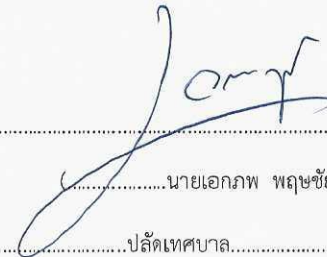 นายเอกภพ พฤษชัย
ปลัดเทศบาล